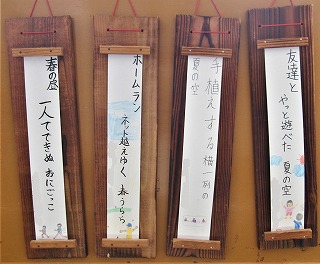 友達と
やっと遊べた 夏の空
手植えする 横一列の
夏の空
ホームラン
ネット越えゆく 春うらら
春の昼
一人でできぬ おにごっこ